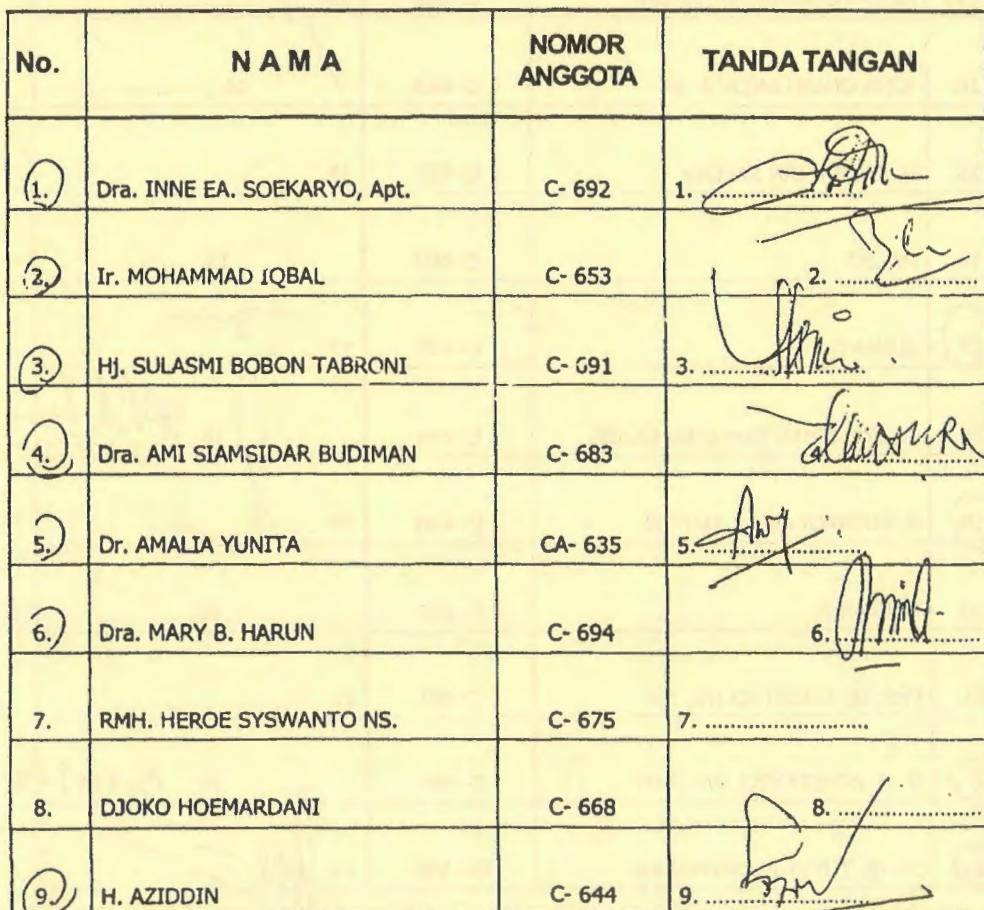 No. NAMA NOMOR ANGGOTA TANDA TANGAN
1. Dra. INNE EA. SOEKARYO, Apt. C- 692 1. ....................
2. Ir. MOHAMMAD IQBAL C- 653 2. ....................
3. Hj. SULASMI BOBON TABRONI C- 691 3. ....................
4. Dra. AMI SIAMSIDAR BUDIMAN C- 683 ....................
5. Dr. AMALIA YUNITA CA- 635 5. ....................
6. Dra. MARY B. HARUN C- 694 6. ....................
7. RMH. HEROE SYSWANTO NS. C- 675 7. ....................
8. DJOKO HOEMARDANI C- 668 8. ....................
9. H. AZIDDIN C- 644 9. ....................